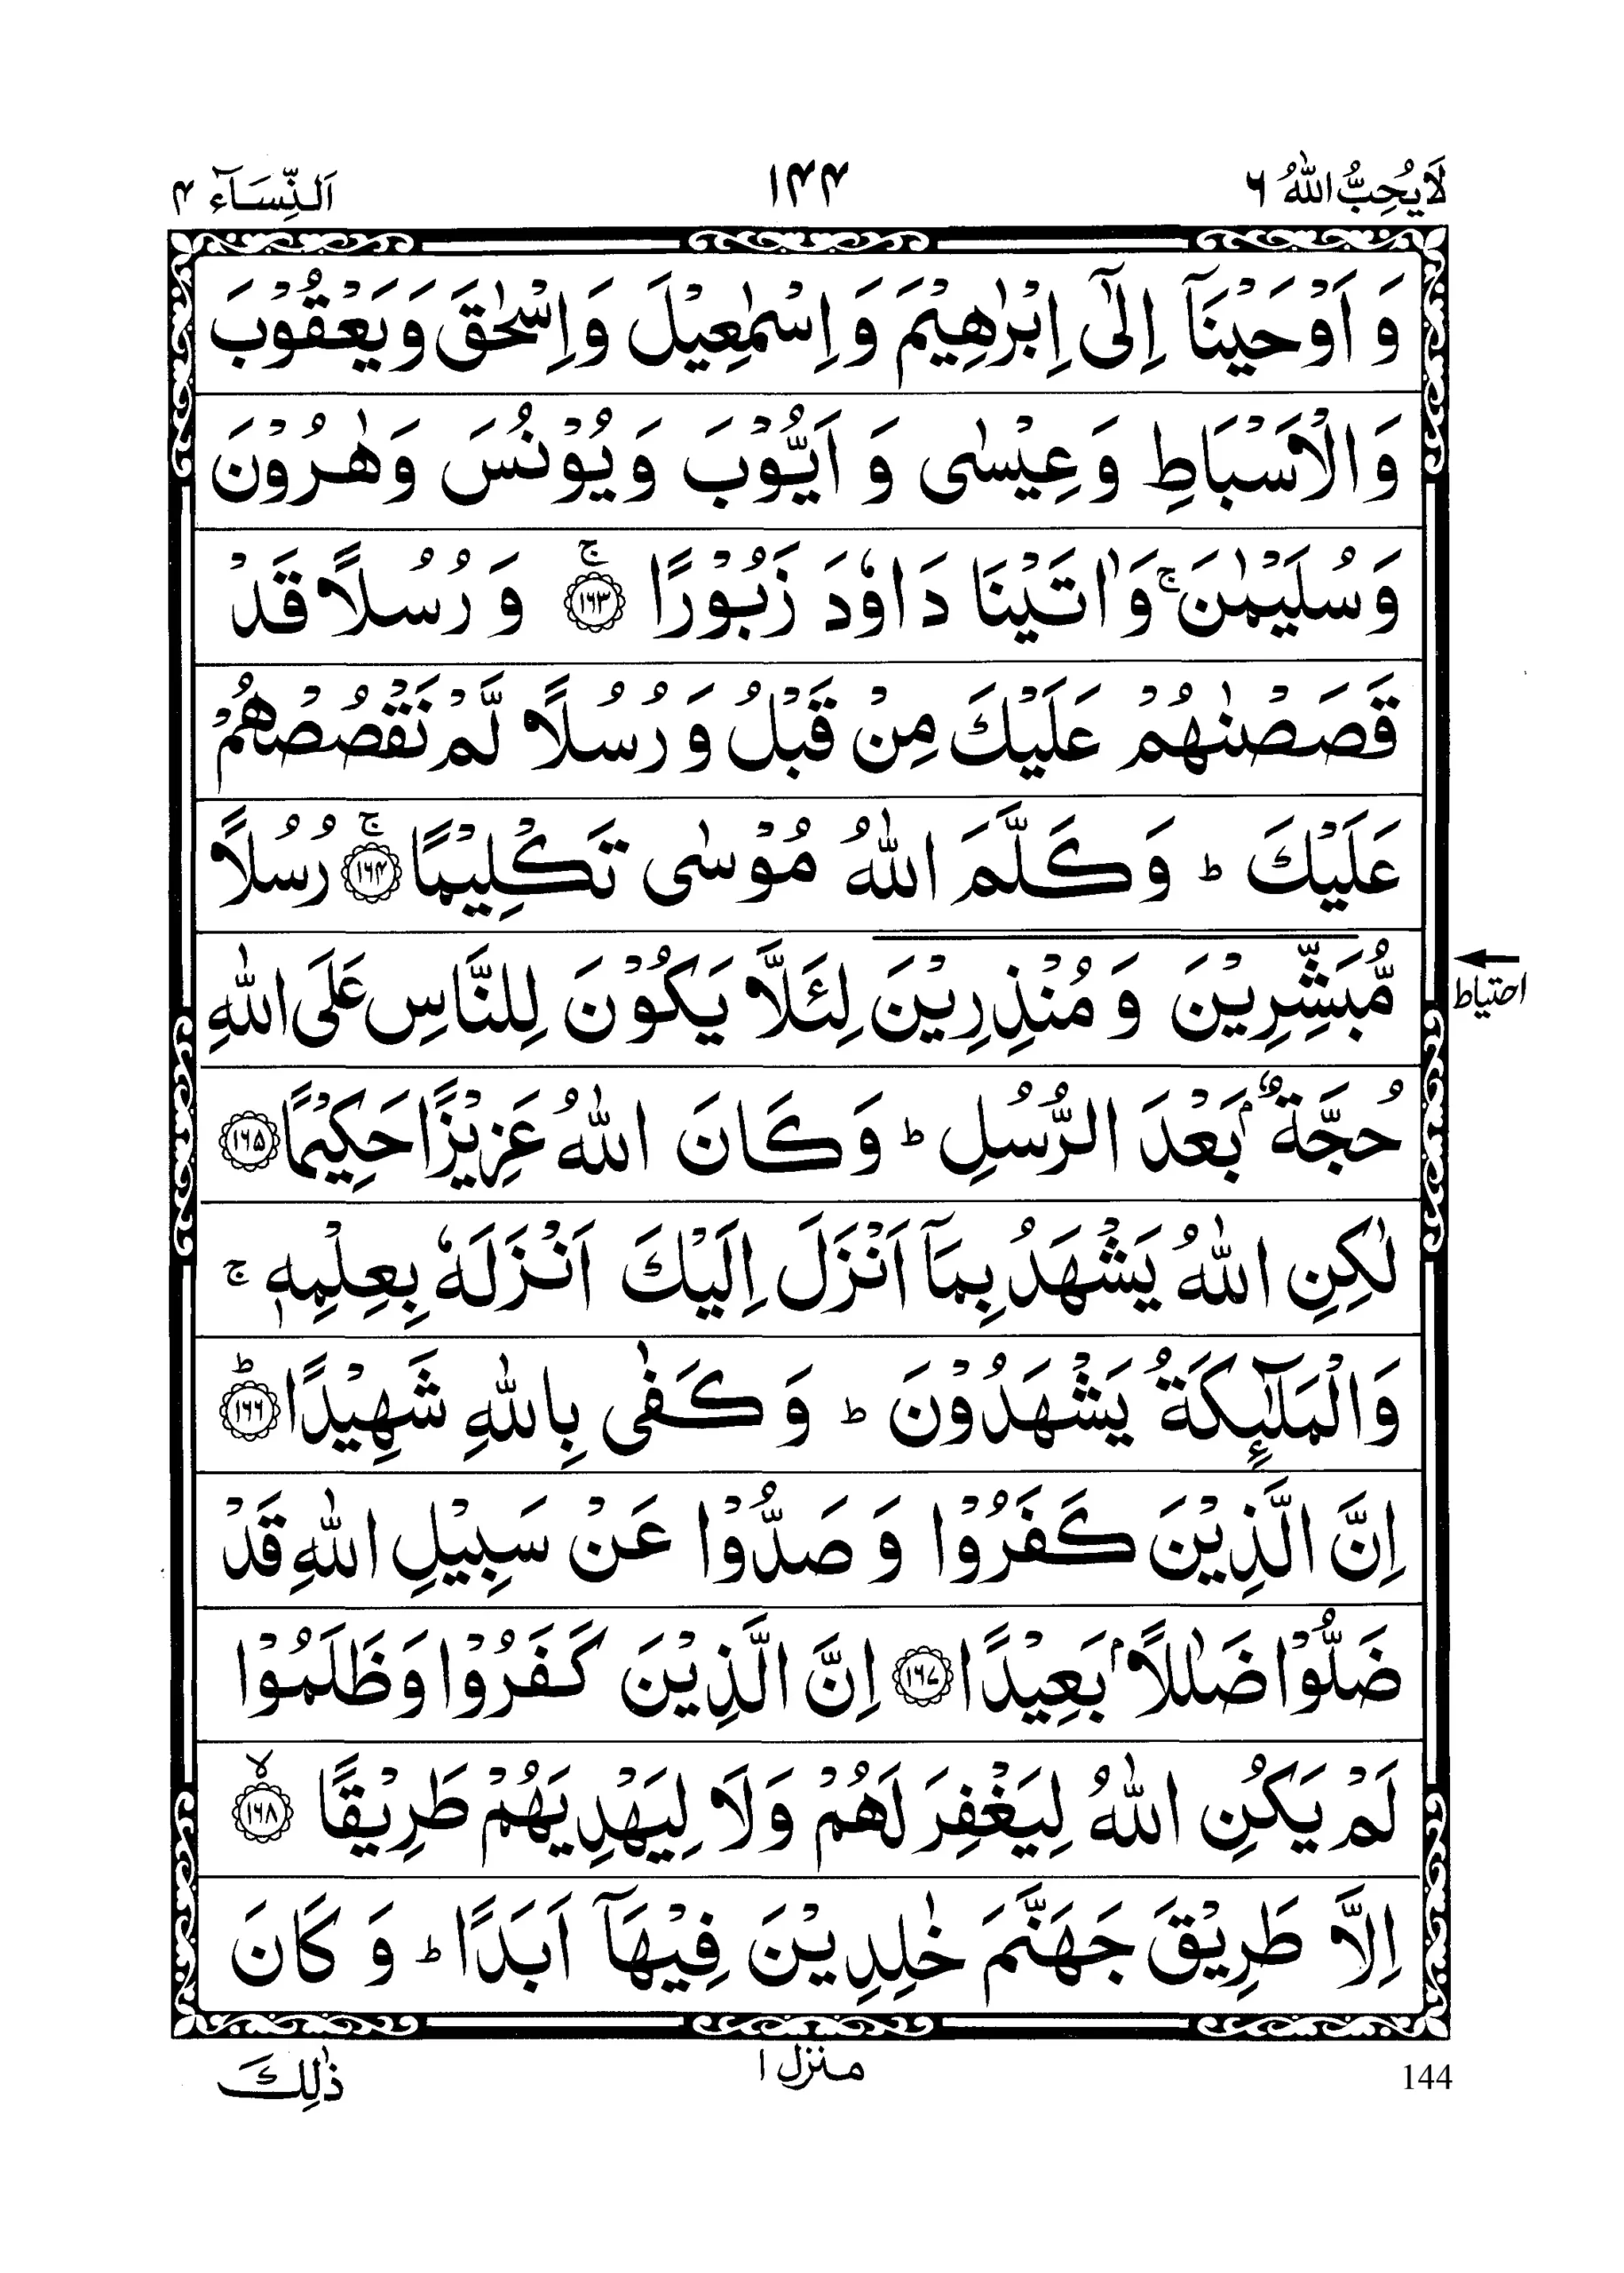 لَا يُحِبُّ اللّٰهُ ٦
١٤٤
اَلنِّسَآء ٤
وَ اَوْحَيْنَآ اِلٰٓى اِبْرٰهِيْمَ وَ اِسْمٰعِيْلَ وَ اِسْحٰقَ وَ يَعْقُوْبَ
وَ الْاَسْبَاطِ وَ عِيْسٰى وَ اَيُّوْبَ وَ يُوْنُسَ وَ هٰرُوْنَ
وَ سُلَيْمٰنَ ۚ وَ اٰتَيْنَا دَاوٗدَ زَبُوْرًا ۚ ﴿١٦٣﴾ وَ رُسُلًا قَدْ
قَصَصْنٰهُمْ عَلَيْكَ مِنْ قَبْلُ وَ رُسُلًا لَّمْ نَقْصُصْهُمْ
عَلَيْكَ ؕ وَ كَلَّمَ اللّٰهُ مُوْسٰى تَكْلِيْمًا ۚ ﴿١٦٤﴾ رُسُلًا
مُّبَشِّرِيْنَ وَ مُنْذِرِيْنَ لِئَلَّا يَكُوْنَ لِلنَّاسِ عَلَى اللّٰهِ
احتیاط
حُجَّةٌۢ بَعْدَ الرُّسُلِ ؕ وَ كَانَ اللّٰهُ عَزِيْزًا حَكِيْمًا ﴿١٦٥﴾
لٰكِنِ اللّٰهُ يَشْهَدُ بِمَآ اَنْزَلَ اِلَيْكَ اَنْزَلَهٗ بِعِلْمِهٖ ۚ
وَ الْمَلٰٓئِكَةُ يَشْهَدُوْنَ ؕ وَ كَفٰى بِاللّٰهِ شَهِيْدًا ؕ ﴿١٦٦﴾
اِنَّ الَّذِيْنَ كَفَرُوْا وَ صَدُّوْا عَنْ سَبِيْلِ اللّٰهِ قَدْ
ضَلُّوْا ضَلٰلًاۢ بَعِيْدًا ﴿١٦٧﴾ اِنَّ الَّذِيْنَ كَفَرُوْا وَ ظَلَمُوْا
لَمْ يَكُنِ اللّٰهُ لِيَغْفِرَ لَهُمْ وَلَا لِيَهْدِيَهُمْ طَرِيْقًا ۙ ﴿١٦٨﴾
اِلَّا طَرِيْقَ جَهَنَّمَ خٰلِدِيْنَ فِيْهَآ اَبَدًا ؕ وَ كَانَ
144
منزل ١
ذٰلِكَ